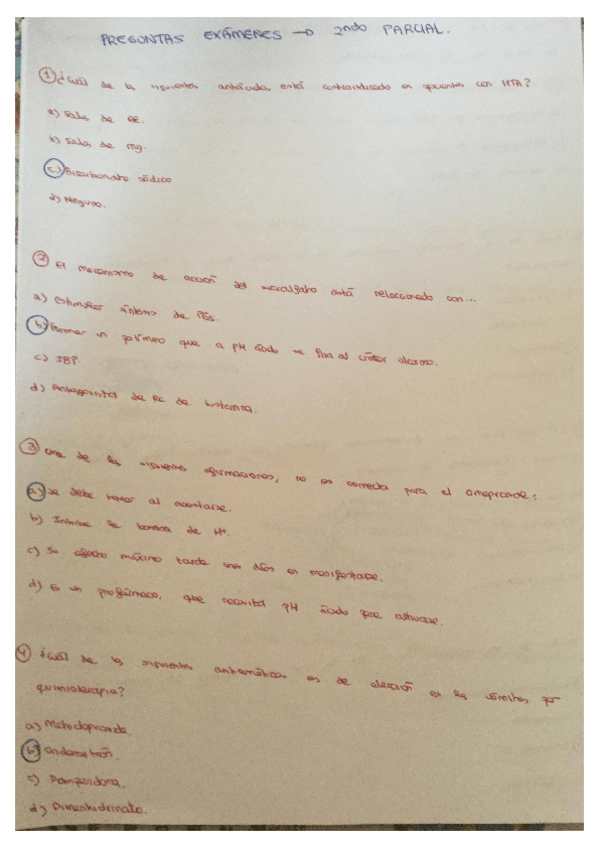 PREGUNTAS EXÁMENES → 2ndo PARCIAL.
① ¿Cuál de los siguientes antiácidos, está contraindicado en pacientes con HTA?
a) Sales de Al.
b) Sales de Mg.
c) Bicarbonato sódico
d) Ninguno.
② El mecanismo de acción del sucralfato está relacionado con...
a) Estimular síntesis de PGs.
b) Formar un polímero que a pH ácido se fija al cráter ulceroso.
c) IBP.
d) Antagonista de Rc de histamina.
③ Una de las siguientes afirmaciones, no es correcta para el omeprazol:
a) Se debe tomar al acostarse.
b) Inhibe la bomba de H+.
c) Su efecto máximo tarda unos días en manifestarse.
d) Es un profármaco, que necesita pH ácido para activarse.
④ ¿Cuál de los siguientes antieméticos es de elección en los vómitos por
quimioterapia?
a) Metoclopramida.
b) Ondansetrón.
c) Domperidona.
d) Dimenhidrinato.